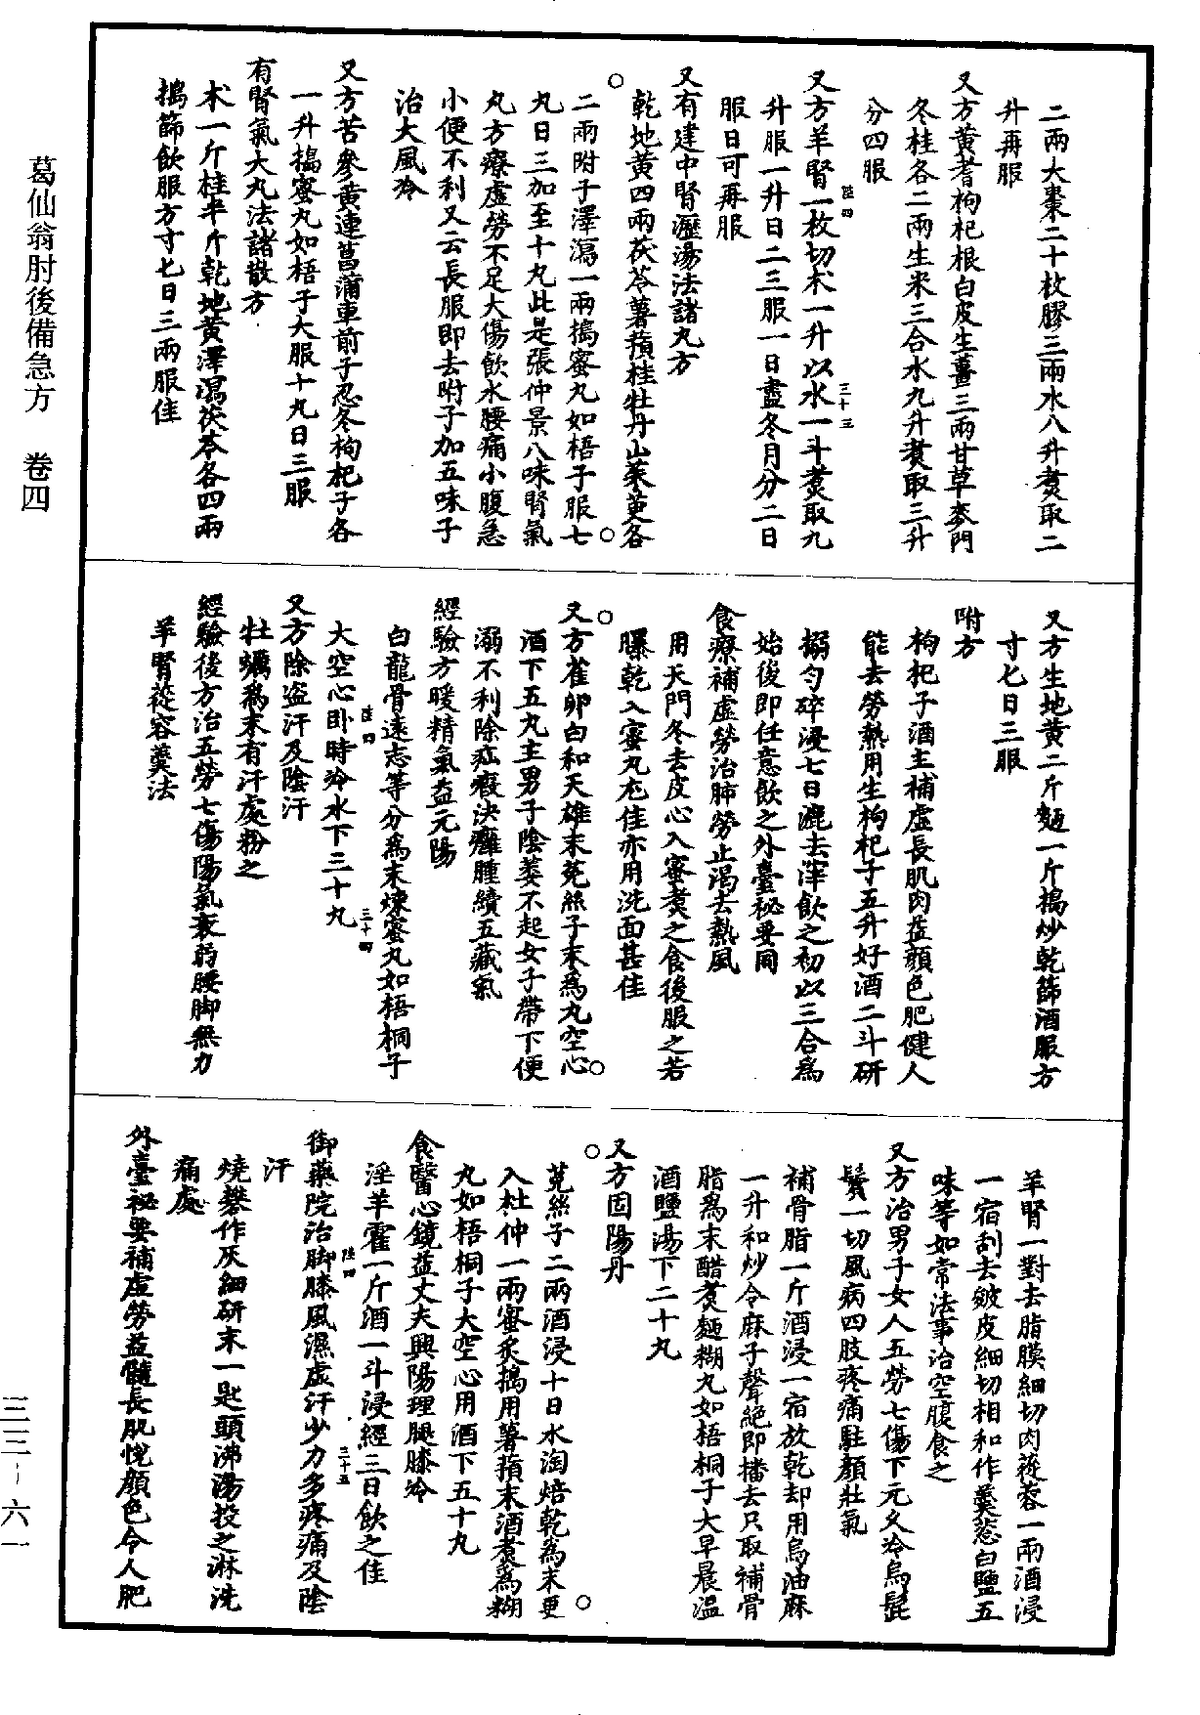 葛仙翁肘後備急方　卷四
二兩大棗二十枚膠三兩水八升煑取二
升再服
又方黃耆枸杞根白皮生薑三兩甘草麥門
冬桂各二兩生米三合水九升煑取三升
分四服
陸四
三十三
又方羊腎一枚切术一升以水一斗煑取九
升服一升日二三服一日盡冬月分二日
服日可再服
又有建中腎瀝湯法諸丸方
乾地黃四兩茯苓薯蕷桂牡丹山茱萸各
二兩附子澤瀉一兩搗蜜丸如梧子服七
丸日三加至十丸此是張仲景八味腎氣
丸方療虛勞不足大傷飲水腰痛小腹急
小便不利又云長服即去附子加五味子
治大風冷
又方苦參黃連菖蒲車前子忍冬枸杞子各
一升搗蜜丸如梧子大服十丸日三服
有腎氣大丸法諸散方
术一斤桂半斤乾地黃澤瀉茯苓各四兩
搗篩飲服方寸匕日三兩服佳
又方生地黃二斤麵一斤搗炒乾篩酒服方
寸匕日三服
附方
枸杞子酒主補虛長肌肉益顏色肥健人
能去勞熱用生枸杞子五升好酒二斗研
搦勻碎浸七日漉去滓飲之初以三合為
始後即任意飲之外臺秘要同
食療補虛勞治肺勞止渴去熱風
用天門冬去皮心入蜜煑之食後服之若
曝乾入蜜丸尤佳亦用洗面甚佳
又方雀卵白和天雄末菟絲子末為丸空心
酒下五丸主男子陰萎不起女子帶下便
溺不利除疝瘕決癰腫續五藏氣
經驗方暖精氣益元陽
白龍骨遠志等分為末煉蜜丸如梧桐子
陸四
三十四
大空心臥時冷水下三十丸
又方除盜汗及陰汗
牡蠣為末有汗處粉之
經驗後方治五勞七傷陽氣衰弱腰脚無力
羊腎蓯容羹法
羊腎一對去脂膜細切肉蓯蓉一兩酒浸
一宿刮去皴皮細切相和作羹葱白鹽五
味等如常法事治空腹食之
又方治男子女人五勞七傷下元久冷烏髭
鬢一切風病四肢疼痛駐顏壯氣
補骨脂一斤酒浸一宿放乾却用烏油麻
一升和炒令麻子聲絕即播去只取補骨
脂為末醋煑麵糊丸如梧桐子大早晨溫
酒鹽湯下二十丸
又方固陽丹
菟絲子二兩酒浸十日水淘焙乾為末更
入杜仲一兩蜜炙搗用薯蕷末酒煑為糊
丸如梧桐子大空心用酒下五十丸
食醫心鏡益丈夫興陽理腿膝冷
淫羊霍一斤酒一斗浸經三日飲之佳
陸四
三十五
御藥院治脚膝風濕虛汗少力多疼痛及陰
汗
燒礬作灰細研末一匙頭沸湯投之淋洗
痛處
外臺祕要補虛勞益髓長肌悅顏色令人肥
三三－六一